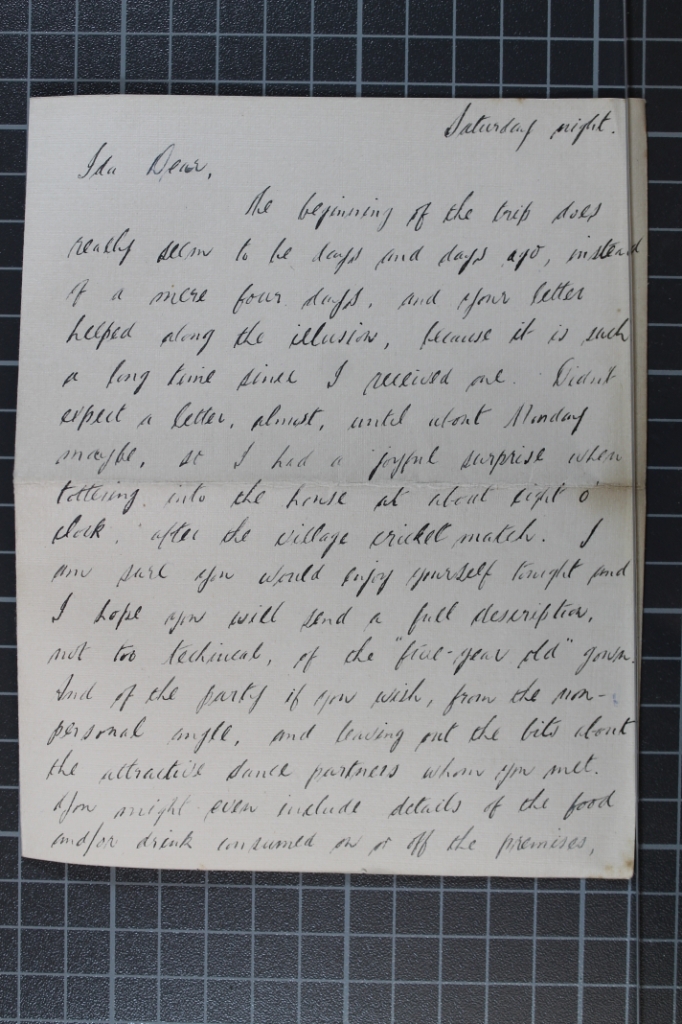 Saturday night.
Ida Dear,
The beginning of the trip does
really seem to be days and days ago, instead
of a mere four days, and your letter
helped along the illusion, because it is such
a long time since I received one. Didn't
expect a letter, almost, until about Monday
maybe, so I had a joyful surprise when
tottering into the house at about eight o'
clock, after the village cricket match. I
am sure you would enjoy yourself tonight and
I hope you will send a full description,
not too techincal, of the "five-year old" gown.
And of the party if you wish, from the non-
personal angle, and leaving out the bits about
the attractive dance partners whom you met.
You might even include details of the food
and/or drink consumed on or off the premises,